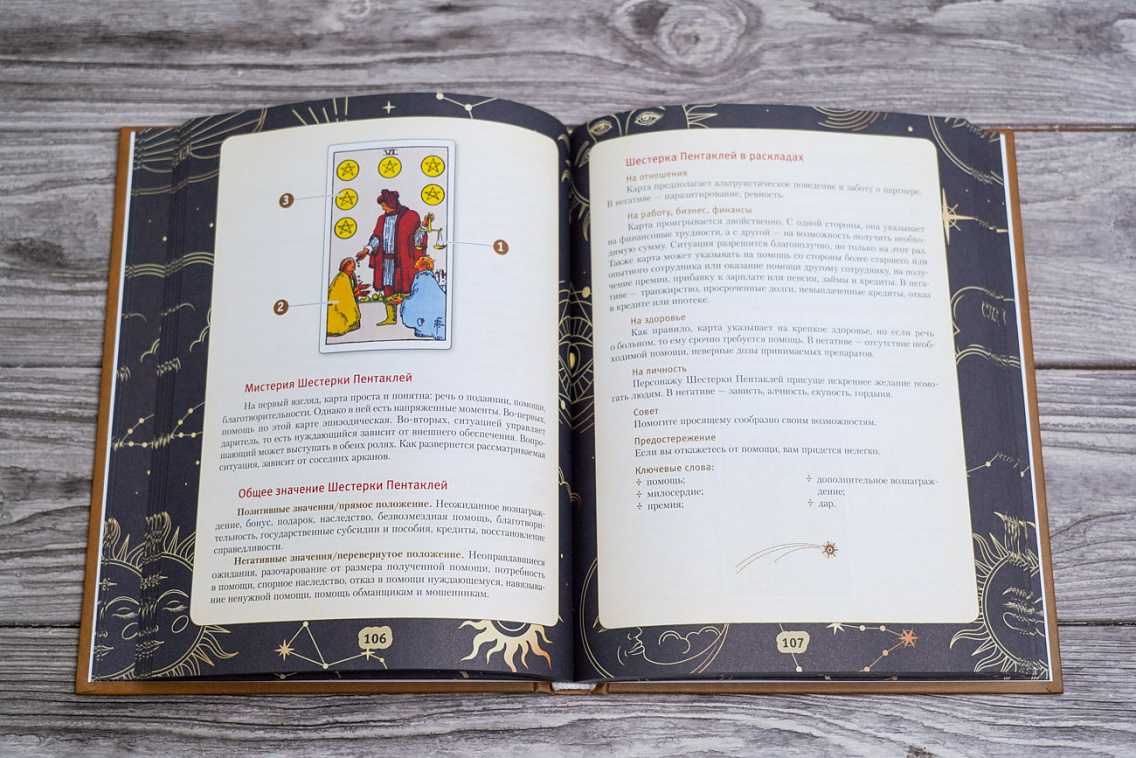 VI
3
1
2
Мистерия Шестерки Пентаклей
На первый взгляд, карта проста и понятна: речь о подаянии, помощи,
благотворительности. Однако в ней есть напряженные моменты. Во-первых,
помощь по этой карте эпизодическая. Во-вторых, ситуацией управляет
даритель, то есть нуждающийся зависит от внешнего обеспечения. Вопро-
шающий может выступать в обеих ролях. Как развернется рассматриваемая
ситуация, зависит от соседних арканов.
Общее значение Шестерки Пентаклей
Позитивные значения/прямое положение. Неожиданное вознаграж-
дение, бонус, подарок, наследство, безвозмездная помощь, благотвори-
тельность, государственные субсидии и пособия, кредиты, восстановление
справедливости.
Негативные значения/перевернутое положение. Неоправдавшиеся
ожидания, разочарование от размера полученной помощи, потребность
в помощи, спорное наследство, отказ в помощи нуждающемуся, навязыва-
ние ненужной помощи, помощь обманщикам и мошенникам.
106
Шестерка Пентаклей в раскладах
На отношения
Карта предполагает альтруистическое поведение и заботу о партнере.
В негативе — паразитирование, ревность.
На работу, бизнес, финансы
Карта проигрывается двойственно. С одной стороны, она указывает
на финансовые трудности, а с другой — на возможность получить необхо-
димую сумму. Ситуация разрешится благополучно, но только на этот раз.
Также карта может указывать на помощь со стороны более старшего или
опытного сотрудника или оказание помощи другому сотруднику, на полу-
чение премии, прибавку к зарплате или пенсии, займы и кредиты. В нега-
тиве — транжирство, просроченные долги, невыплаченные кредиты, отказ
в кредите или ипотеке.
На здоровье
Как правило, карта указывает на крепкое здоровье, но если речь
о больном, то ему срочно требуется помощь. В негативе — отсутствие необ-
ходимой помощи, неверные дозы принимаемых препаратов.
На личность
Персонажу Шестерки Пентаклей присуще искреннее желание помо-
гать людям. В негативе — зависть, алчность, скупость, гордыня.
Совет
Помогите просящему сообразно своим возможностям.
Предостережение
Если вы откажетесь от помощи, вам придется нелегко.
Ключевые слова:
помощь;
милосердие;
премия;
дополнительное вознаграж-
дение;
дар.
107